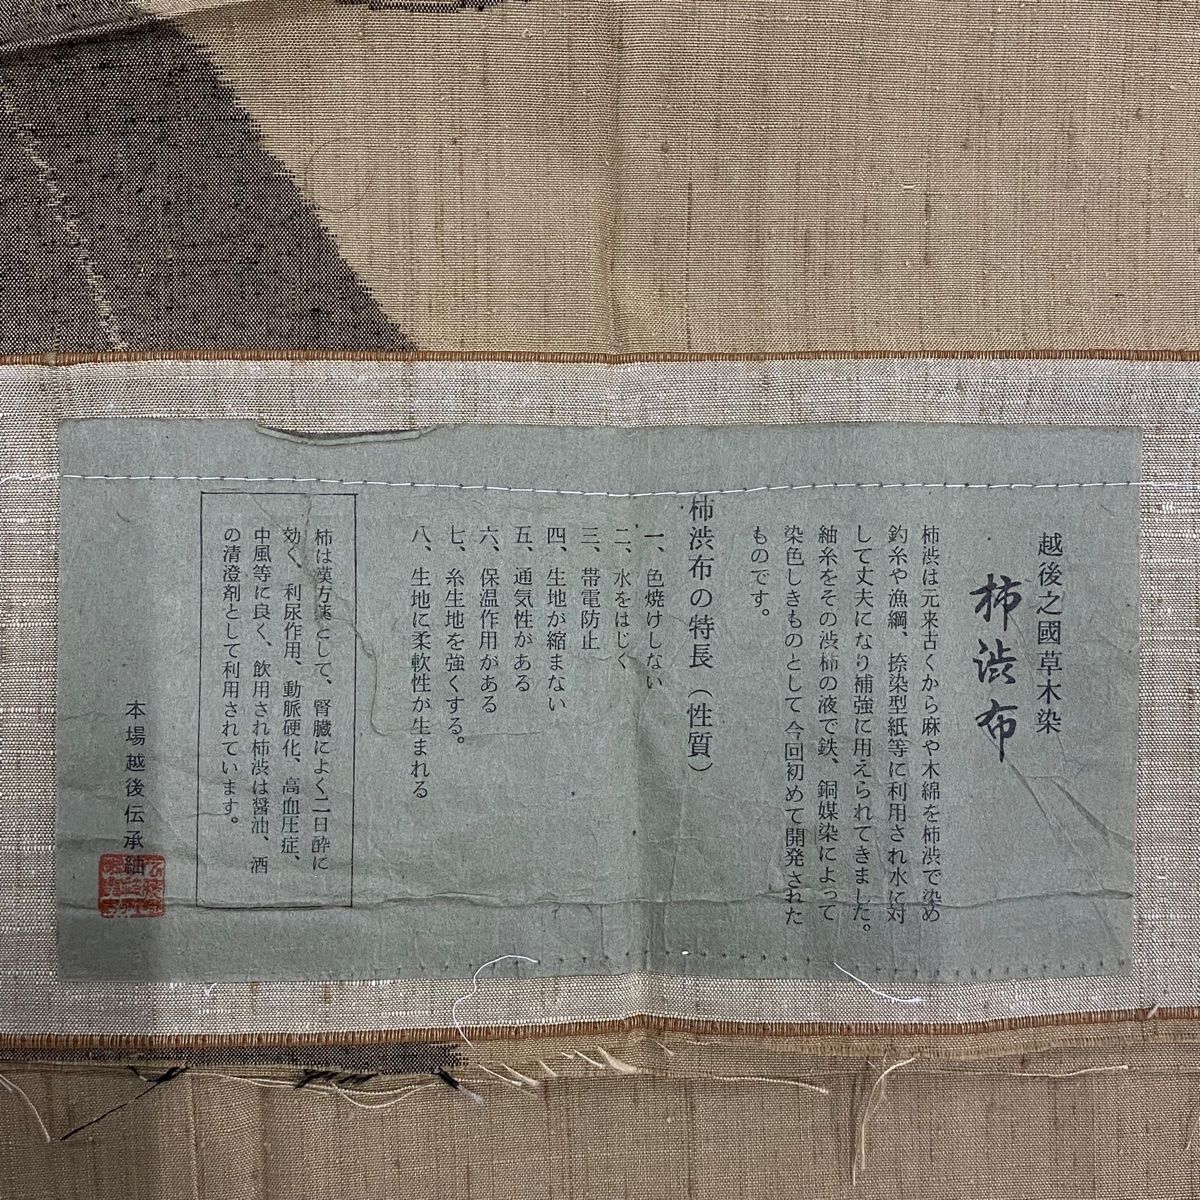 越後之國草木染
柿渋布
柿渋は元来古くから麻や木綿を柿渋で染め
釣糸や漁綱、捺染型紙等に利用され水に対
して丈夫になり補強に用えられてきました。
紬糸をその渋柿の液で鉄、銅媒染によって
染色しきものとして今回初めて開発された
ものです。
柿渋布の特長（性質）
一、色焼けしない
二、水をはじく
三、帯電防止
四、生地が縮まない
五、通気性がある
六、保温作用がある
七、糸生地を強くする。
八、生地に柔軟性が生まれる
柿は漢方薬として、腎臓によく二日酔に
効く、利尿作用、動脈硬化、高血圧症、
中風等に良く、飲用され柿渋は醤油、酒
の清澄剤として利用されています。
本場越後伝承紬